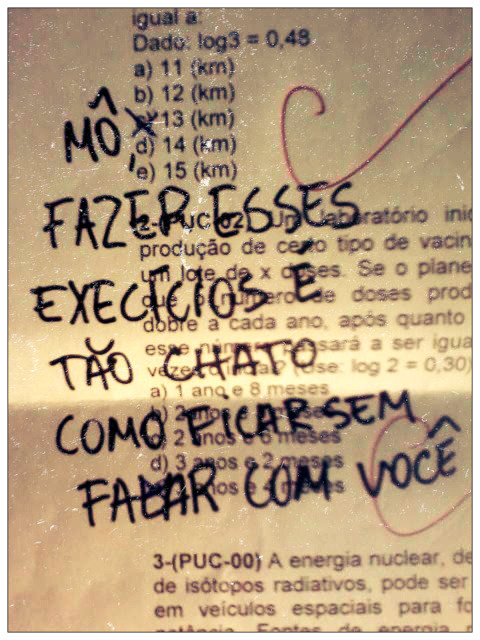 igual a:
Dado: log3 = 0,48
a) 11 (km)
b) 12 (km)
13 (km)
d) 14 (km)
e) 15 (km)
MÔ,
FAZER ESSES
EXECÍCIOS É
TÃO CHATO
COMO FICAR SEM
FALAR COM VOCÊ
2-(PUC-02) Um laboratório inic
produção de certo tipo de vacin
um lote de x doses. Se o plane
que o número de doses prod
dobre a cada ano, após quanto
esse número passará a ser igua
vezes o inicial? (Use: log 2 = 0,30)
a) 1 ano e 8 meses
b) 2 anos e meses
2 anos e 6 meses
d) 3 anos e 2 meses
anos e meses
3-(PUC-00) A energia nuclear, de
de isótopos radiativos, pode ser
em veículos espaciais para fo
potência. Fontes de energia